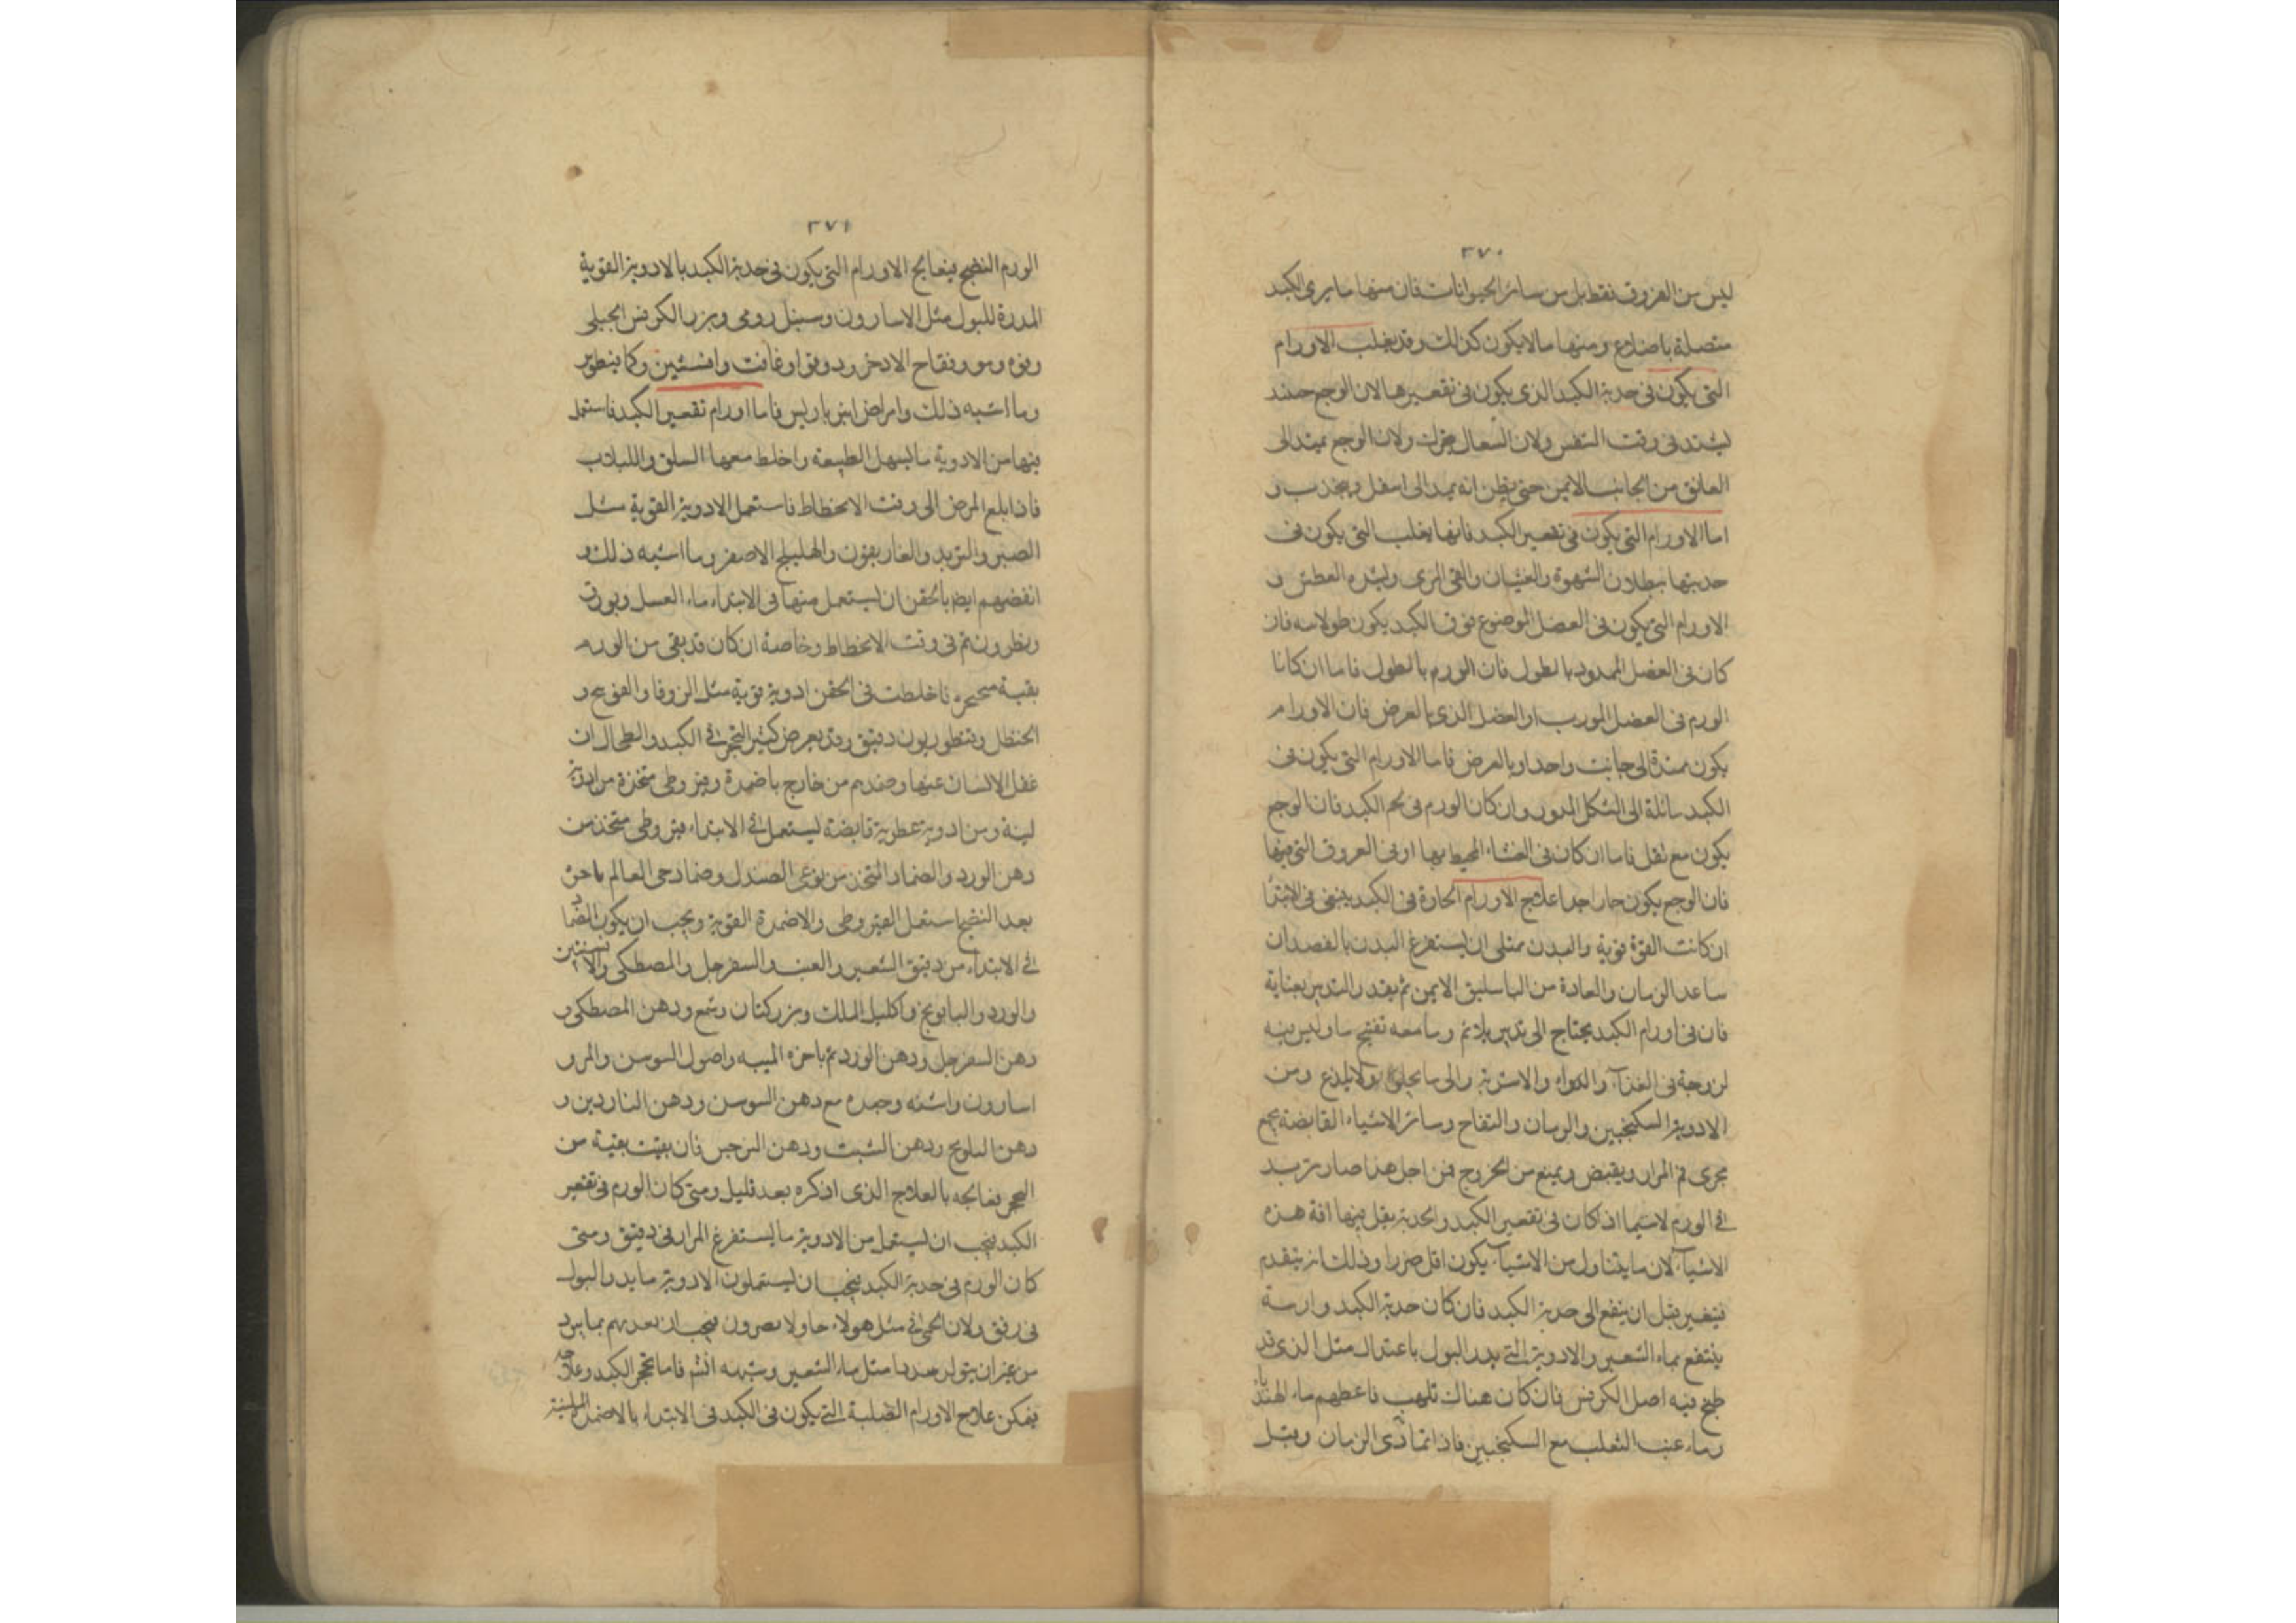 ٣٧٠
ليس من العروق فقط بل من سائر الحيوانات فان منها ما يرى الكبد
متصلة باضلاع ومنها ما لا يكون كذلك وقد يغلب الاورام
التى يكون فى حدبة الكبد الذى يكون فى تقعيرها لان الوجع حينئذ
يشتد فى وقت التنفس ولان السعال يتحرك ولان الوجع يمتد الى
العاتق من الجانب الايمن حتى يظن انه يمد الى اسفل ويجذب و
اما الاورام التى يكون فى تقعير الكبد فانها يغلب التى يكون فى
حدبتها ببطلان الشهوة والغثيان والقى المرى وبشدة العطش و
الاورام التى يكون فى العضل الموضوع فوق الكبد يكون طولا فان
كان فى العضل الممدود بالطول فان الورم بالطول فاما ان كانا
الورم فى العضل المورب او العضل الذى بالعرض فان الاورام
يكون ممتدة الى جانب واحد او بالعرض فاما الاورام التى يكون فى
الكبد سائلة الى الشكل المدور وان كان الورم فى لحم الكبد فان الوجع
يكون مع ثقل فاما ان كان فى الغشاء المحيط بها او فى العروق التى فيها
فان الوجع يكون حارا جدا علاج الاورام الحارة فى الكبد ينبغى فى الابتدأ
ان كانت القوة قوية والبدن ممتلى ان يستفرغ البدن بالفصد ان
ساعد الزمان والعادة من الباسليق الايمن ثم يقدر التدبير بعناية
فان فى اورام الكبد يحتاج الى تدبير بلائم وما معه تفتيح ما وليس فيه
لزوجة فى الغذآ والدواء والاشربة والى ما يجلو ولا يلذع ومن
الادوية السكنجبين والرمان والتفاح وسائر الاشياء القابضة يجمع
مجرى فم المرار ويقبض ويمنع من الخروج فمن اجل هذا صار تزيد
فى الورم لاسيما اذ كان فى تقعير الكبد والحدبة يقل فيها افة هذه
الاشيآء لان ما يتناول من الاشيآء يكون اقل ضررا وذلك انه يتقدم
فيتغير قبل ان يقع الى حدبة الكبد فان كان حدبة الكبد وارمة
ينتفع بماء الشعير والادوية التى يدر البول باعتدال مثل الذى قد
طبخ فيه اصل الكرفس فان كان هناك تلهب فاعطهم ماء الهندبا
وماء عنب الثعلب مع السكنجبين فاذا تمادى الزمان وقبل
٣٧١
الورم النضج فيعالج الاورام التى يكون فى حدبة الكبد بالادوية القوية
المدرة للبول مثل الاسارون وسنبل رومى وبزر الكرفس الجبلى
وفوه ومو وفقاح الاذخر ودوقوا وغافت وافسنتين وكمافيطوس
وما اشبه ذلك واقراض انبرباريس فاما اورام تقعير الكبد فاستعمل
فيها من الادوية ما يسهل الطبيعة واخلط معها السلق واللبلاب
فاذا بلغ المرض الى وقت الانحطاط فاستعمل الادوية القوية مثل
الصبر والتربد والغاريقون والهليلج الاصفر وما اشبه ذلك و
انفضهم ايضا بالحقن ان يستعمل منها فى الابتداء ماء العسل وبورق
ونطرون ثم فى وقت الانحطاط وخاصة ان كان قد بقى من الورم
بقية متحجرة فاخلطت فى الحقن ادوية قوية مثل الزوفا والفوتنج و
الحنظل وقنطوريون دقيق وقد يعرض كثير التحجر فى الكبد والطحال ان
غفل الانسان عنها وضمدهم من خارج باضمدة وقيروطى متخذة من ادوية
لينة ومن ادوية عطرية قابضة يستعمل فى الابتداء قيروطى متخذ من
دهن الورد والضماد المتخذ من نوعى الصندل وضماد حى العالم باخرة
بعد النضج استعمل القيروطى والاضمدة القوية ويجب ان يكون الضماد
فى الابتداء من دقيق الشعير والعنب والسفرجل والمصطكى والافسنتين
والورد والبابونج واكليل الملك وبزركتان وشمع ودهن المصطكى و
دهن السفرجل ودهن الورد ثم باخرة الميبه واصول السوسن والمر و
اسارون واشنه وجعده مع دهن السوسن ودهن الناردين و
دهن البابونج ودهن الشبت ودهن النرجس فان بقيت بقية من
التحجر يعالجه بالعلاج الذى اذكره بعد قليل ومتى كان الورم فى تقعير
الكبد فيجب ان يستعمل من الادوية ما يستفرغ المرار فى دقيق ومتى
كان الورم فى حدبة الكبد فيجب ان يستعملون الادوية ما يدر البول
فى رفق ولان الحمى فى مثل هولاء حاولا فيجب ان بما يبرد
من غير ان مثل ماء الشعير وشبهه اشم فاما تحجر الكبد وعلاجه
يمكن علاج الاورام الصلبة التى يكون فى الكبد فى الابتداء بالاضمدة الملينة